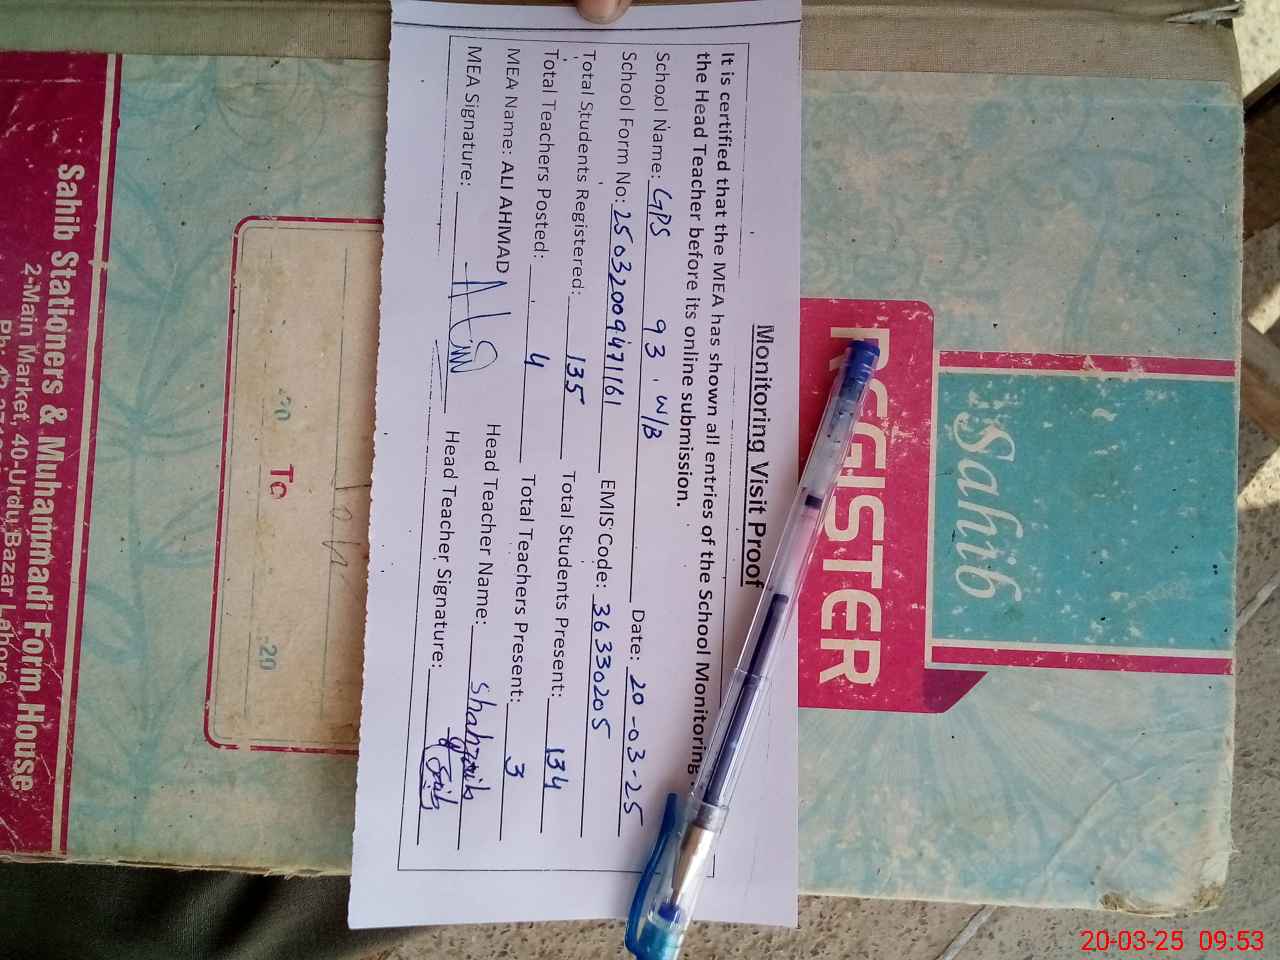 Monitoring Visit Proof
It is certified that the MEA has shown all entries of the School Monitoring
the Head Teacher before its online submission.
School Name: GPS 93, W/B Date: 20-03-25
School Form No: 25032009471161 EMIS Code: 36330205
Total Students Registered: 135 Total Students Present: 134
Total Teachers Posted: 4 Total Teachers Present: 3
MEA Name: ALI AHMAD Head Teacher Name: Shahzaib
MEA Signature: Head Teacher Signature:
Sahib
REGISTER
-20 To -20
Sahib Stationers & Muhammadi Form House
2-Main Market, 40-Urdu Bazar Lahore
20-03-25 09:53